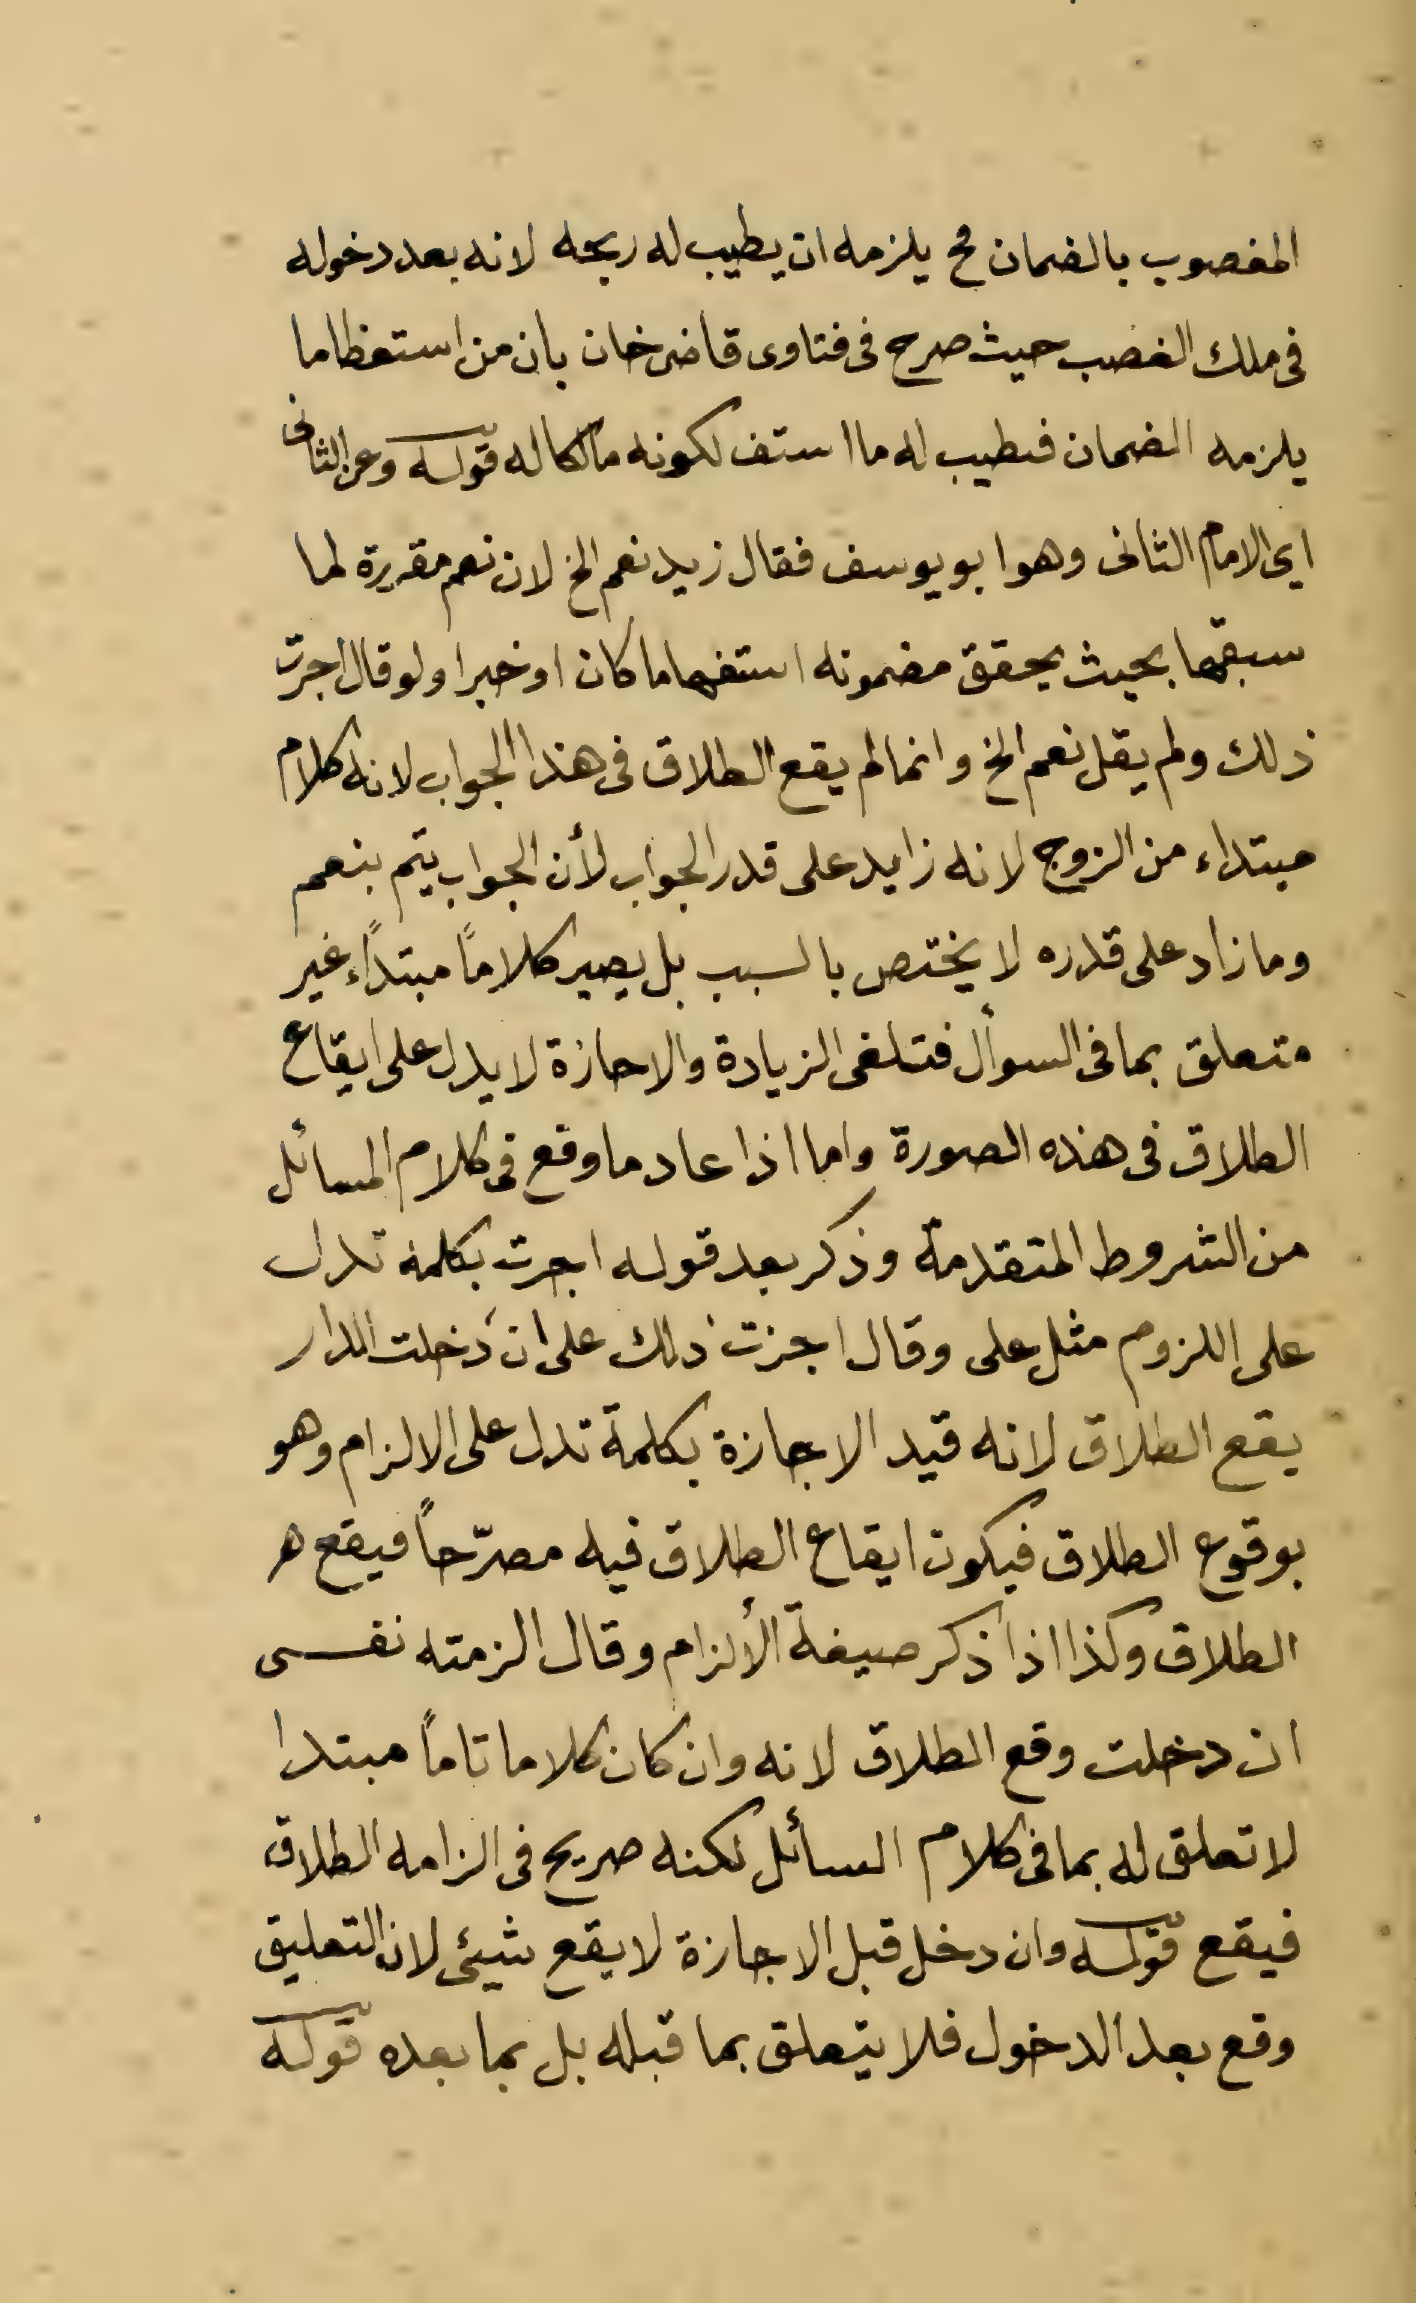 المغصوب بالضمان مح يلزمه ان يطيب له ربحه لانه بعد دخوله
فى ملك الغصب حيث صرح فى فتاوى قاضى خان بان من استعظاما
يلزمه الضمان فيطيب له ما استف لكونه مالكاله قوله وعن الثانى
اى الامام الثانى وهو ابو يوسف فقال زيد نعم الخ لان نعم مقررة لما
سبقها بحيث يحقق مضمونه استفهاما كان او خبرا ولو قال اجرت
ذلك ولم يقل نعم الخ وانما لم يقع الطلاق فى هذا الجواب لانه كلام
مبتداء من الزوج لانه زايد على قدر الجواب لأن الجواب يتم بنعم
وما زاد على قدره لا يختص بالسبب بل يصير كلاماً مبتدًاء غير
متعلق بما فى السوأل فتلغى الزيادة والاحازة لا يدل على ايقاع
الطلاق فى هذه الصورة واما اذا عاد ما وقع فى كلام المسائل
من الشروط المتقدمة وذكر بعد قوله اجرت بكلمة تدل
على اللزوم مثل على وقال اجزت ذلك على ان دخلت الدار
يقع الطلاق لانه قيد الاجازة بكلمة تدل على الالزام وهو
بوقوع الطلاق فيكون ايقاع الطلاق فيه مصرّحاً فيقع هر
الطلاق وكذا اذا ذكر صيغة الألزام وقال الزمته نفسى
ان دخلت وقع الطلاق لانه وان كان كلاما تاماً مبتدا
لا تعلق له بما فى كلام السائل لكنه صريح فى الزامه الطلاق
فيقع قوله وان دخل قبل الاجازة لا يقع شيئى لان التعليق
وقع بعد الدخول فلا يتعلق بما قبله بل بما بعده قوله